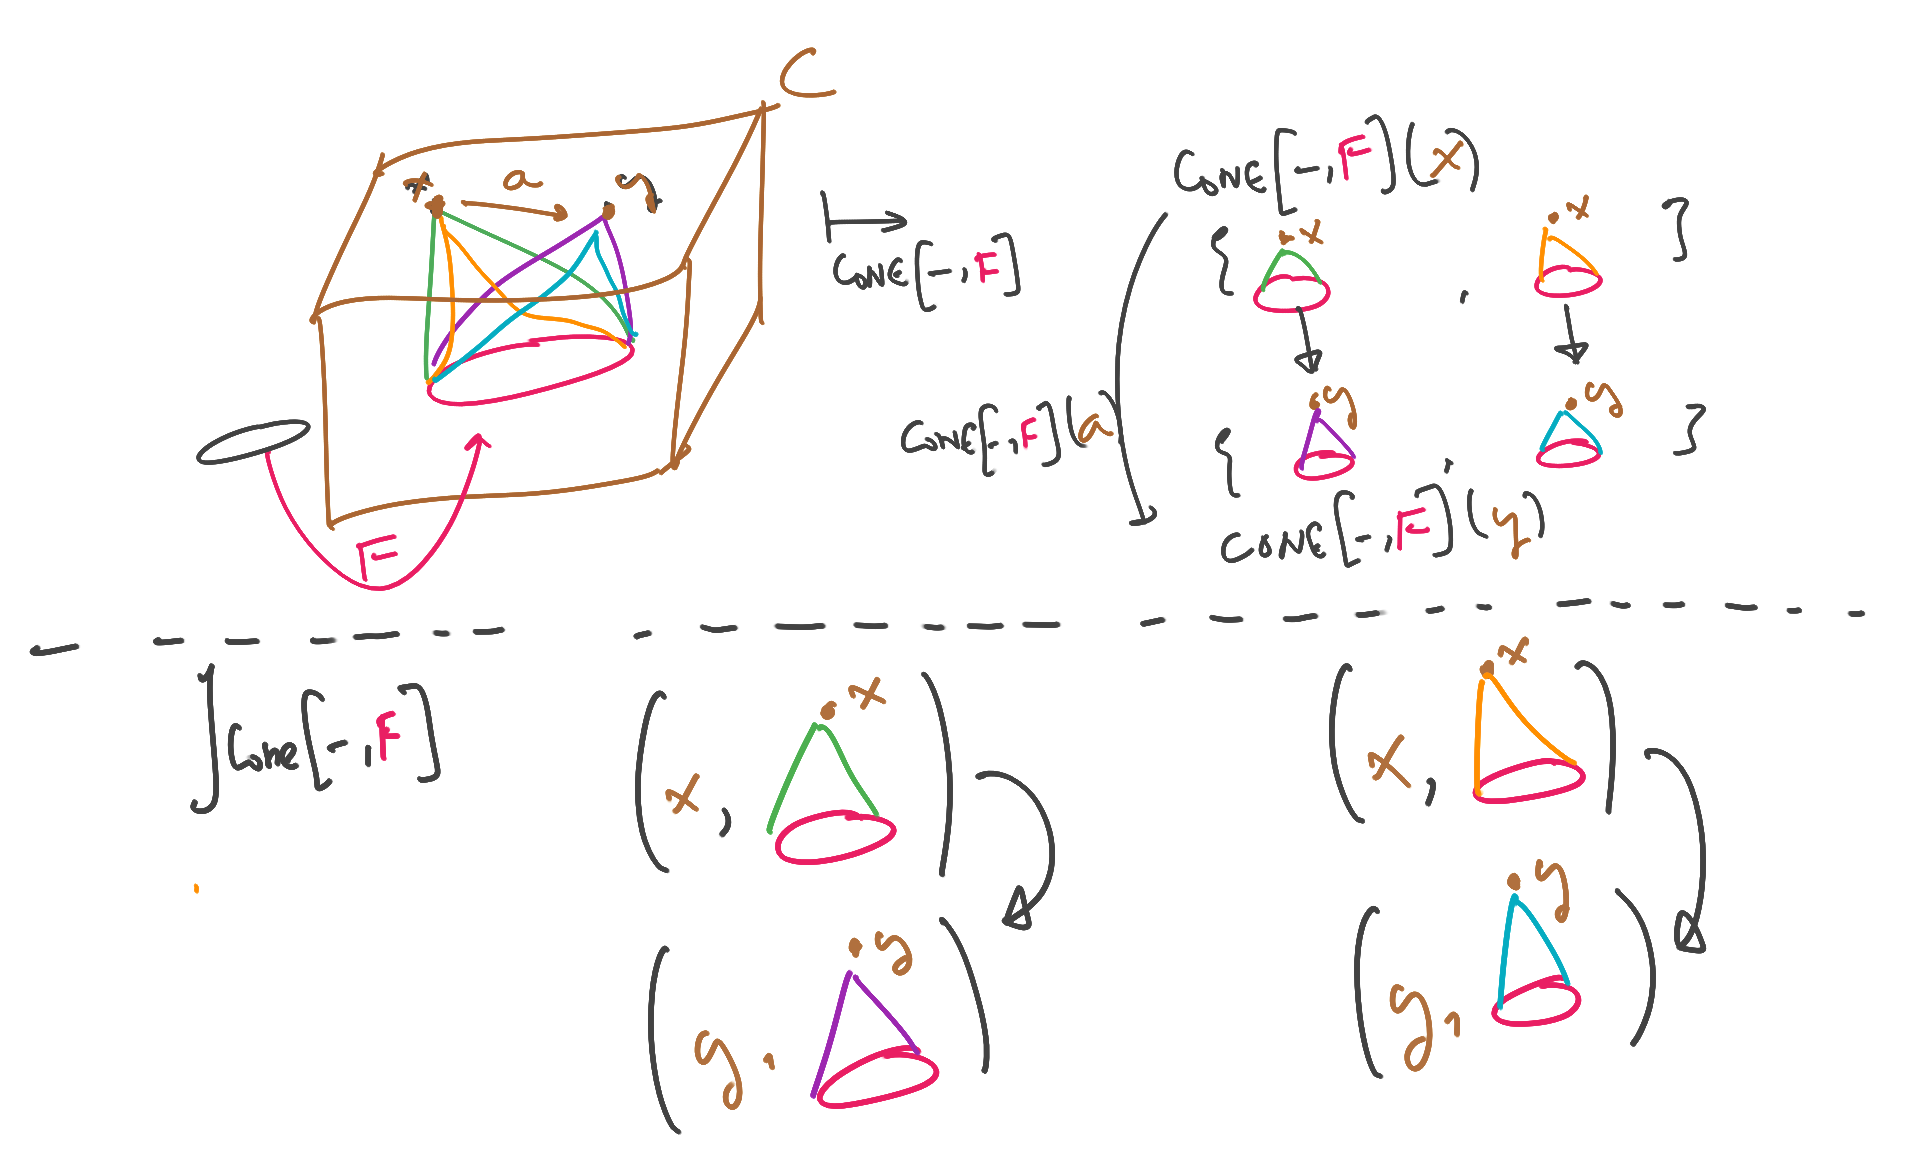 C
x a y
CONE[-,F]
F
CONE[-,F](x)
{ x , x }
CONE[-,F](a)
{ y , y }
CONE[-,F](y)
∫Cone[-,F]
(x, x)
(y, y)
(x, x)
(y, y)